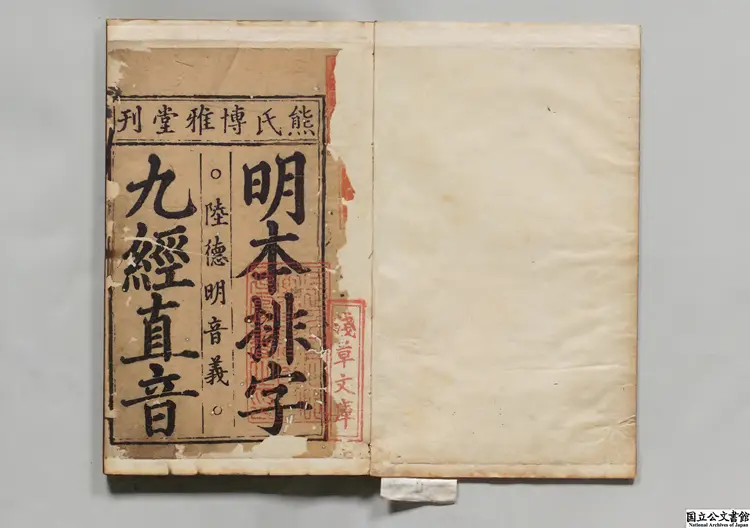 熊氏博雅堂刊
明本排字
。陸德明音義。
九經直音
淺草文庫
国立公文書館
National Archives of Japan